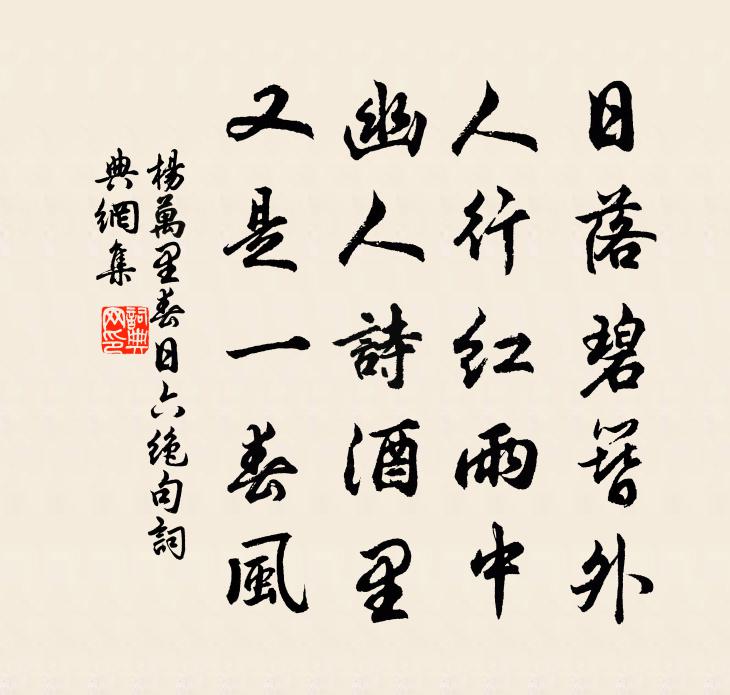 日落碧簪外
人行紅雨中
幽人詩酒里
又是一春風
楊萬里春日六絕句詞
典網集
詞典
网印